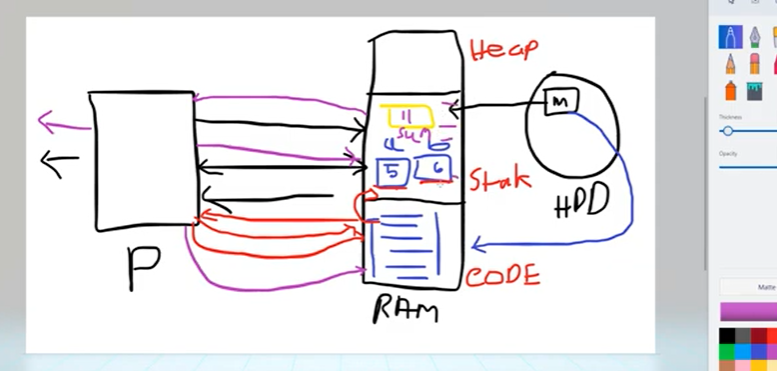 Heap
M
11
sum
a b
5 6
Stak
HDD
P
CODE
RAM
Thickness
Opacity
Matte